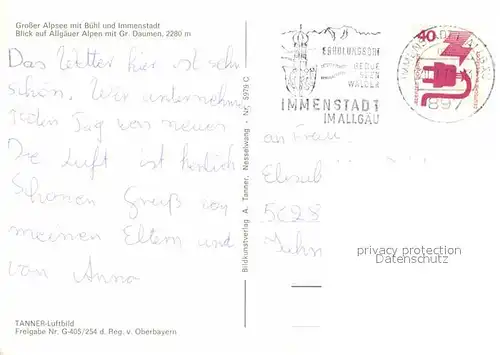 Großer Alpsee mit Bühl und Immenstadt
Blick auf Allgäuer Alpen mit Gr. Daumen, 2280 m
Das Wetter hier ist sehr
schön. Wir unternehmen
jeden Tag von neuen
Die Luft ist herlich
Schönen Gruß von
meinen Eltern und
von Anna
TANNER-Luftbild
Freigabe Nr. G-405/254 d. Reg. v. Oberbayern
Bildkunstverlag A. Tanner, Nesselwang · Nr. 5979 C
ERHOLUNGSORT
BERGE
SEEN
WÄLDER
IMMENSTADT
IM ALLGÄU
40
IMMENSTADT
897
an Frau
5628
privacy protection
Datenschutz